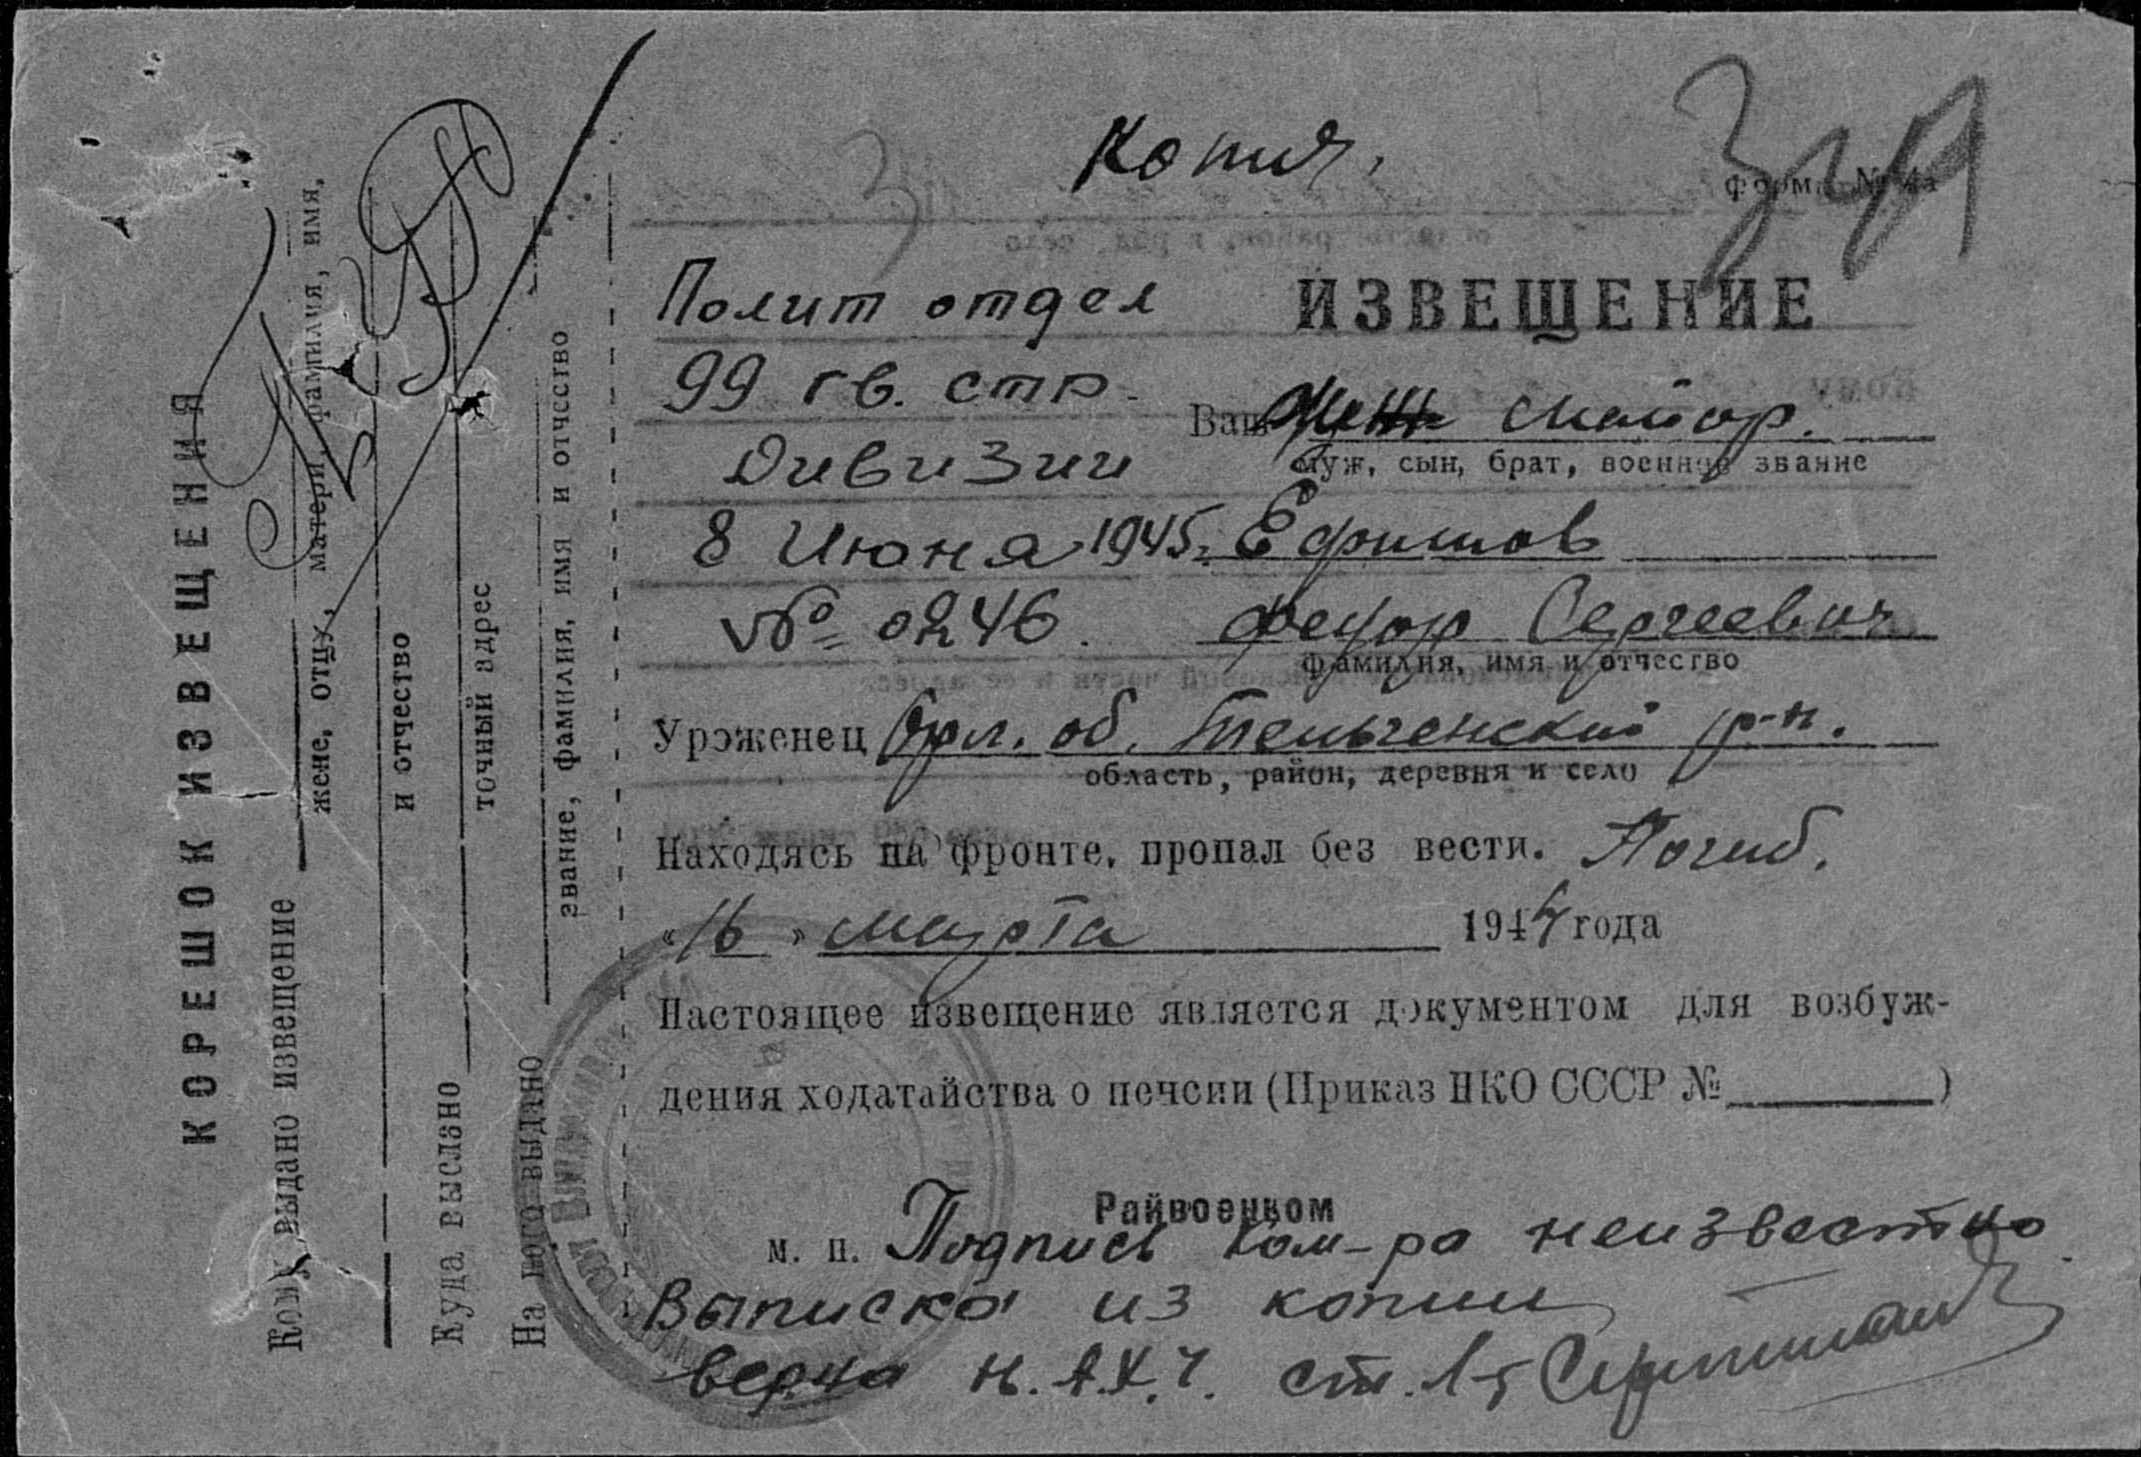 КОРЕШОК ИЗВЕЩЕНИЯ
Кому выдано извещение
жене, отцу, матери, фамилия, имя,
и отчество
Куда выслано
точный адрес
На кого выдано
звание, фамилия, имя и отчество
Копия.
форма № 4а
ИЗВЕЩЕНИЕ
Полит отдел
99 гв. стр.
Дивизии
8 Июня 1945г.
№ 0246.
Ваш муж майор.
муж, сын, брат, военное звание
Ефимов
Федор Сергеевич
фамилия, имя и отчество
Уроженец Орл. об. Тельченский р-н.
область, район, деревня и село
Находясь на фронте, пропал без вести. Погиб.
«16» марта 1944 года
Настоящее извещение является документом для возбуж-
дения ходатайства о пенсии (Приказ НКО СССР № )
Райвоенком
м. п. Подпись ком-ра неизвестно
Выписка из копии
верна н.А.Х.Ч. ст. л-т